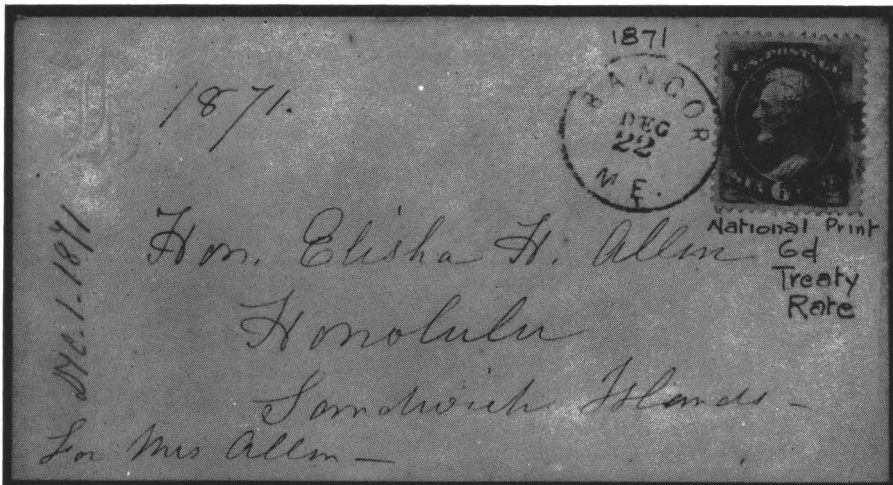 1871
1871.
BANGOR
DEC
22
ME.
U.S. POSTAGE
SIX
6
National Print
6d
Treaty
Rate
Hon. Elisha H. Allen
Honolulu
Sandwich Islands –
For Mrs Allen –
1.1871